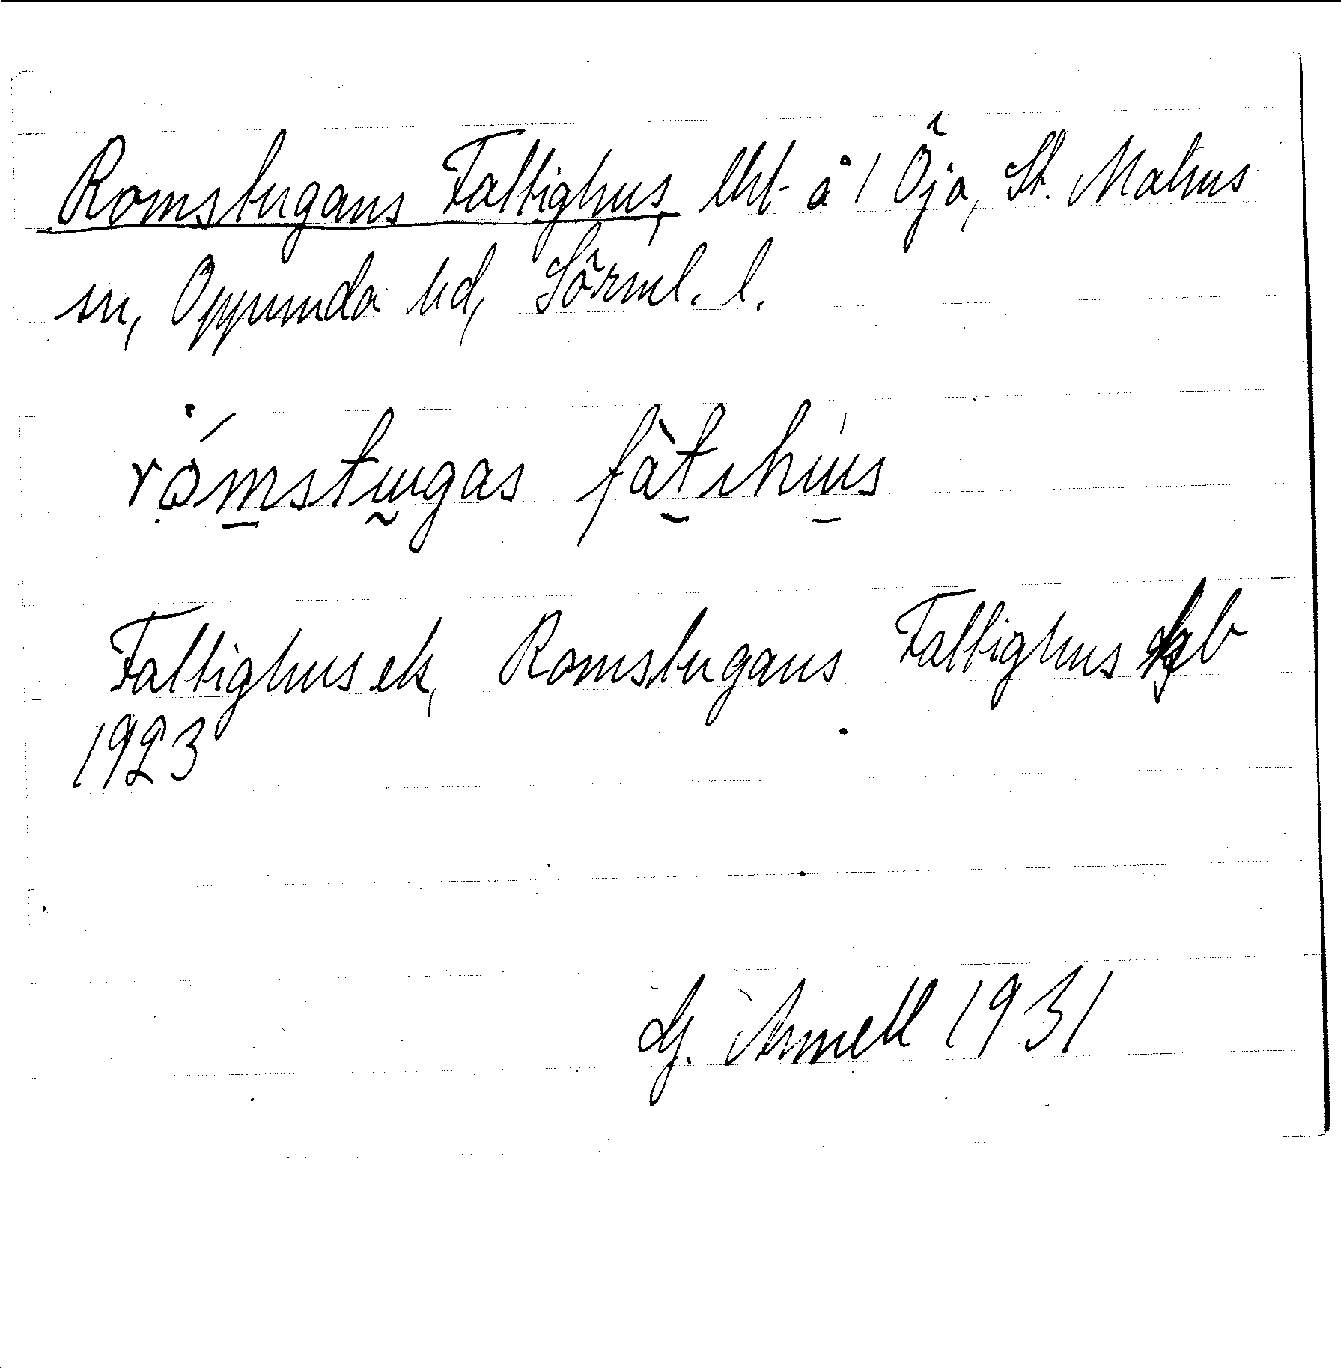 Romstugans Fattighus, lht å 1 Öja, St. Malms
sn, Oppunda hd, Sörml. l.
rómstugas fàtihus
Fattighus ek, Romstugans Fattighus jb
1923
G. Annell 1931